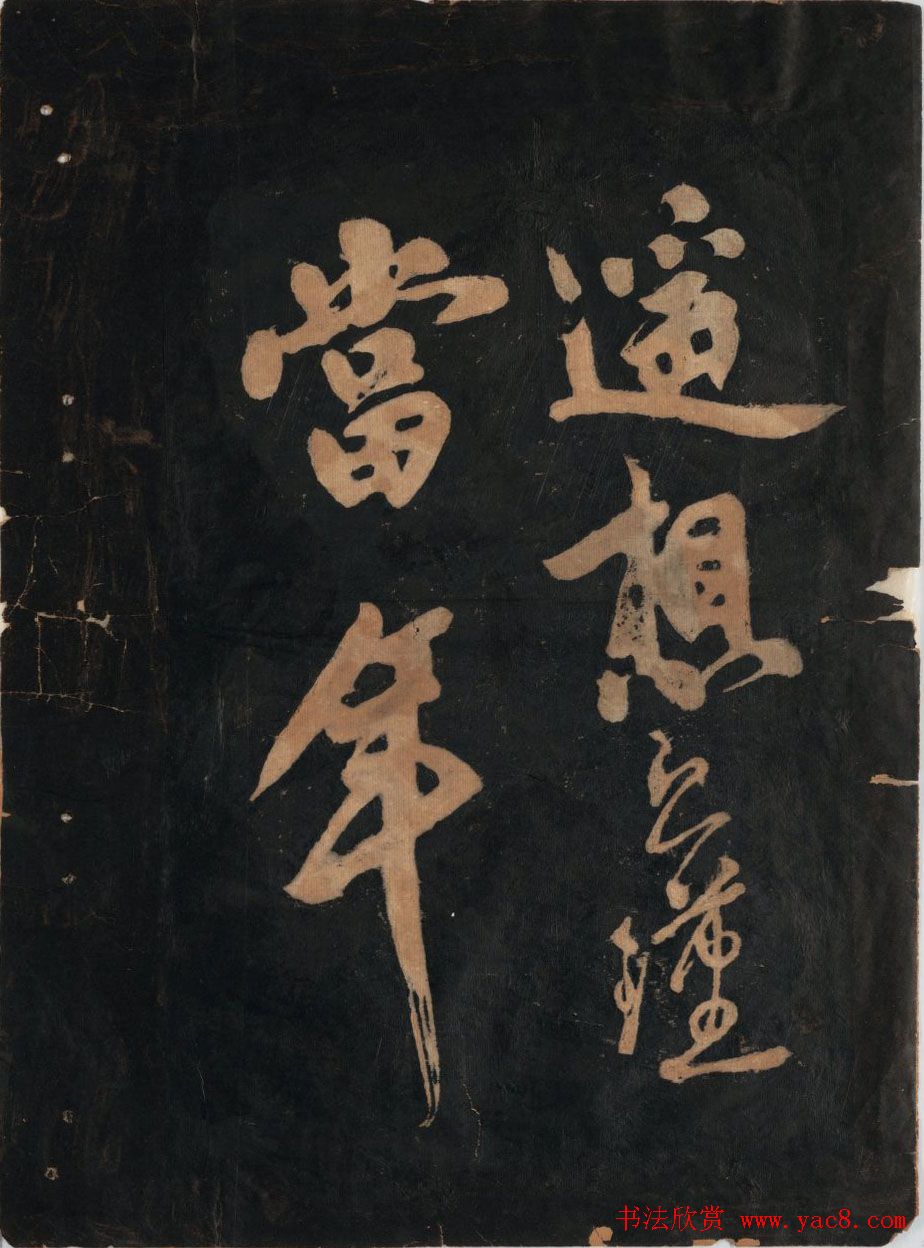 遙想公瑾
當年
书法欣赏 www.yac8.com